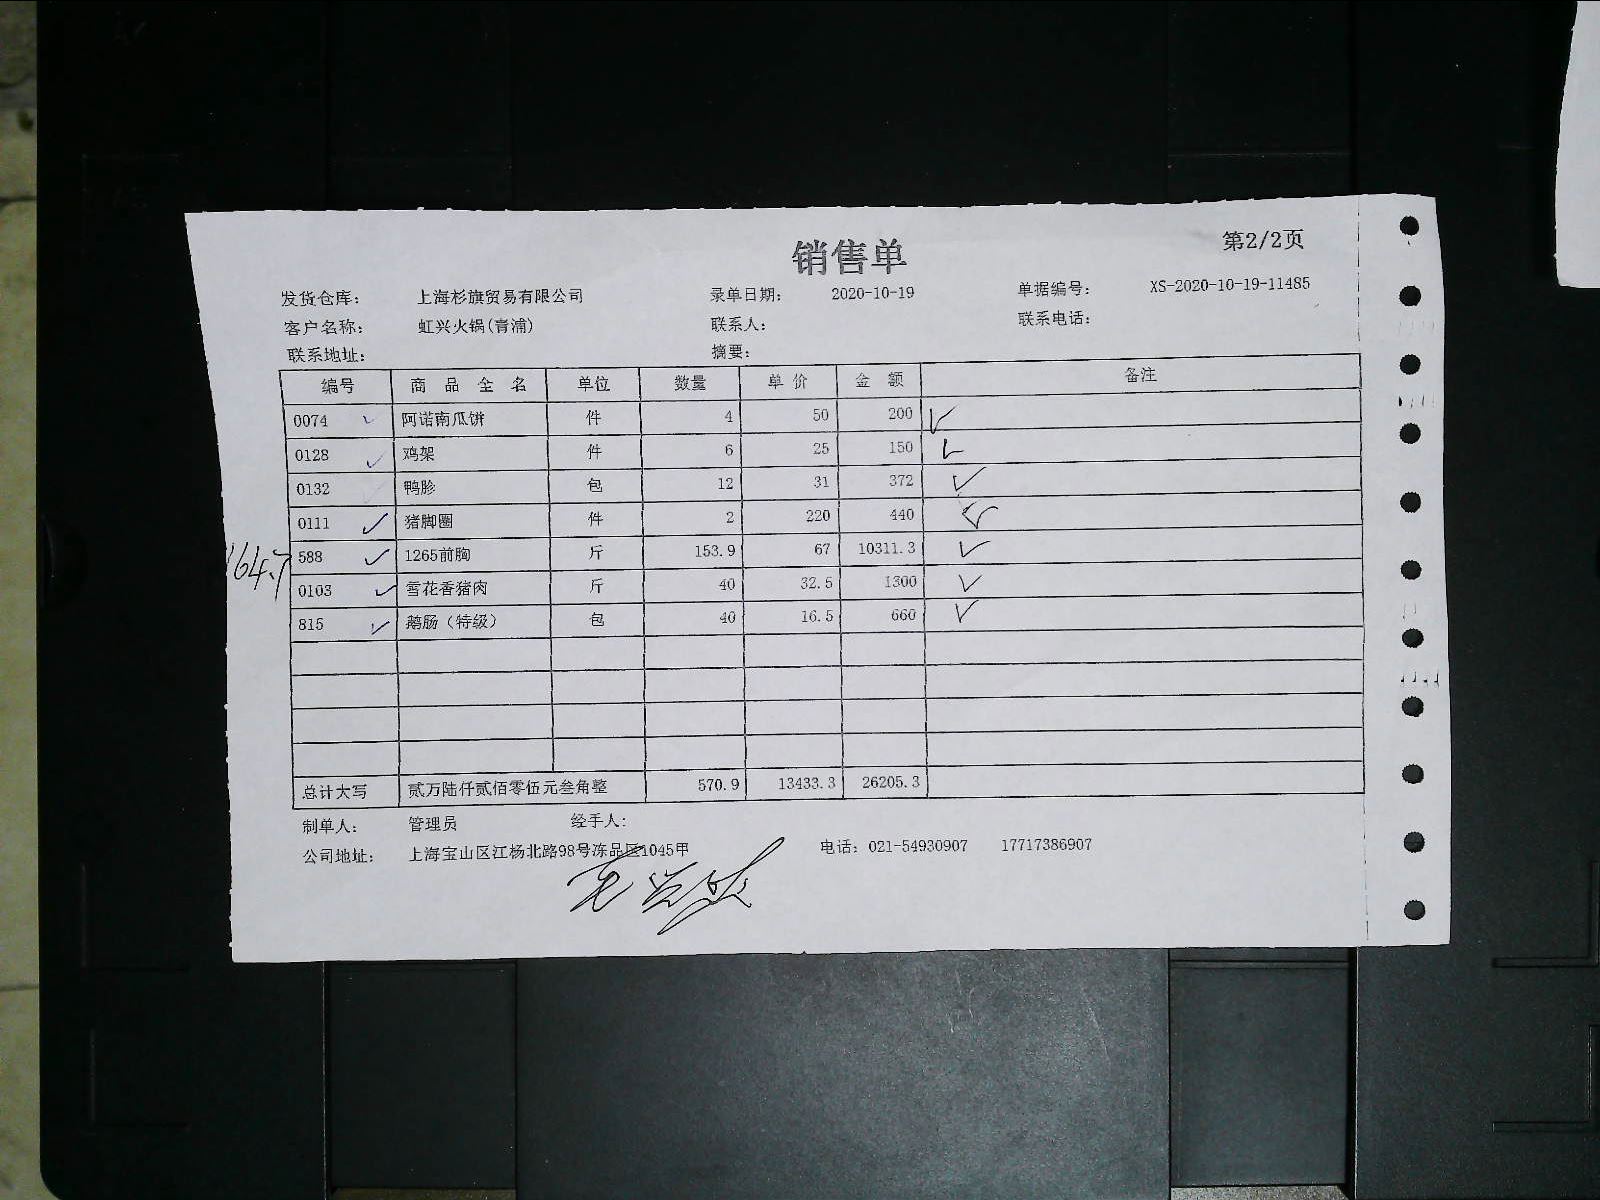 销售单
第2/2页
发货仓库： 上海杉旗贸易有限公司 录单日期： 2020-10-19 单据编号： XS-2020-10-19-11485
客户名称： 虹兴火锅(青浦) 联系人： 联系电话：
联系地址： 摘要：
编号 商品全名 单位 数量 单价 金额 备注
0074 阿诺南瓜饼 件 4 50 200
0128 鸡架 件 6 25 150
0132 鸭胗 包 12 31 372
0111 猪脚圈 件 2 220 440
164.7 588 1265前胸 斤 153.9 67 10311.3
0103 雪花香猪肉 斤 40 32.5 1300
815 鹅肠（特级） 包 40 16.5 660
总计大写 贰万陆仟贰佰零伍元叁角整 570.9 13433.3 26205.3
制单人： 管理员 经手人：
公司地址： 上海宝山区江杨北路98号冻品区1045甲 电话：021-54930907 17717386907